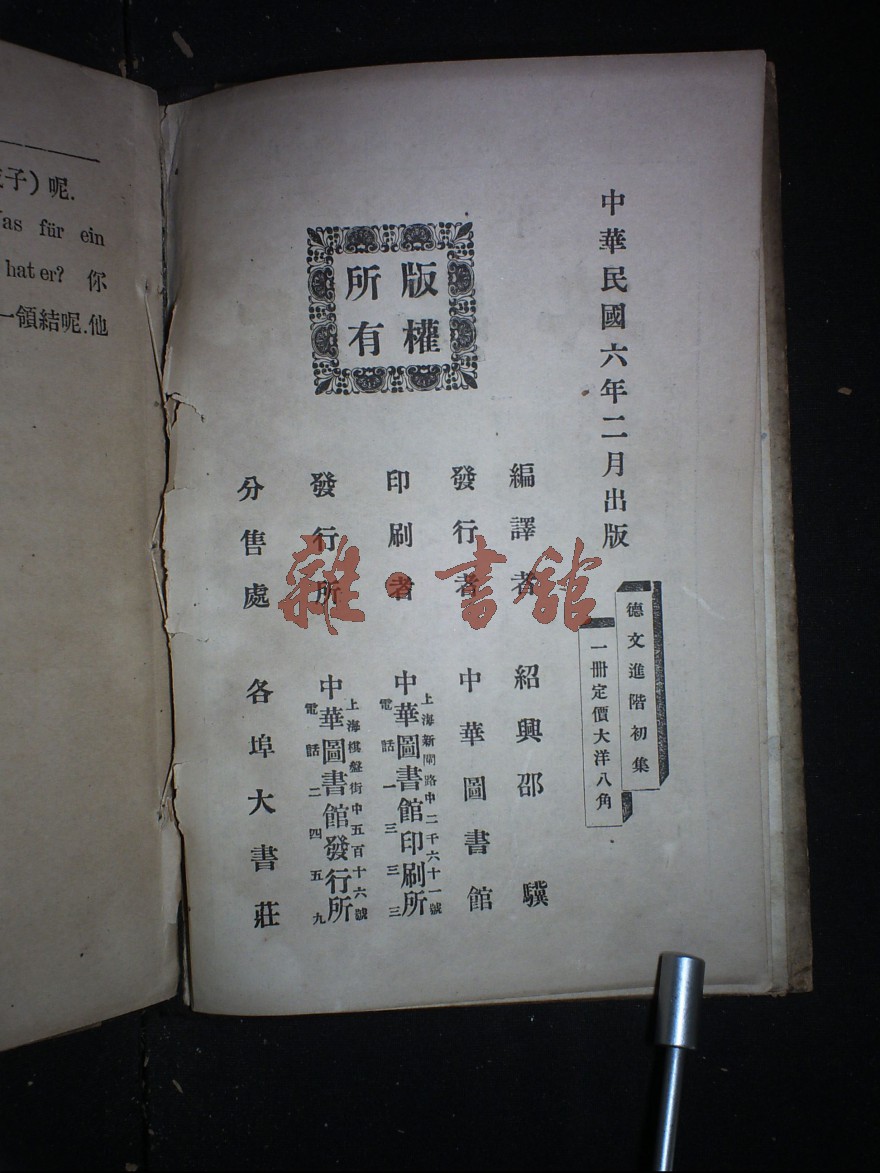 子）呢.
as für ein
hat er? 你
一領結呢.他
中華民國六年二月出版
德文進階初集
一冊定價大洋八角
版權所有
編譯者 紹興邵驥
發行者 中華圖書館
印刷者 中華圖書館印刷所
上海新閘路中二千六十一號
電話一三三三
發行所 中華圖書館發行所
上海棋盤街中五百十六號
電話二四五九
分售處 各埠大書莊
雜·書館